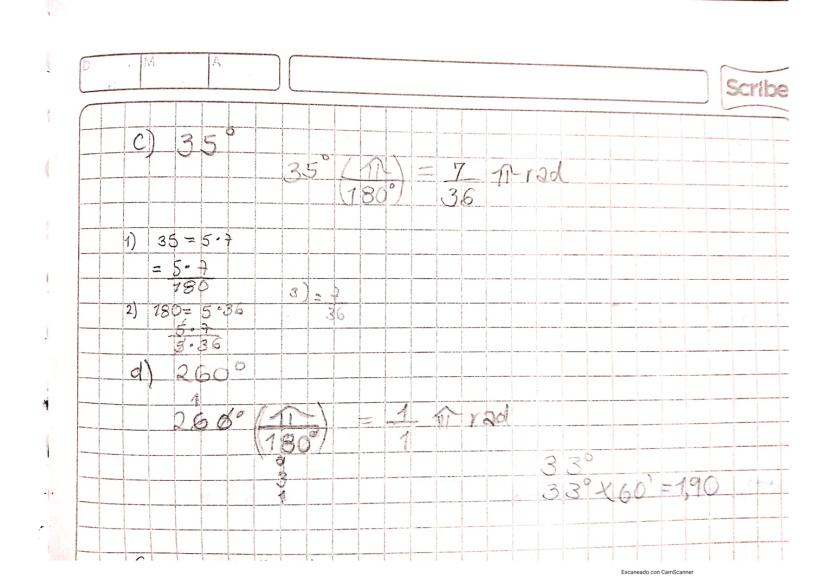 D M A
Scribe
c) 35°
35° (π/180°) = 7/36 π rad
1) 35 = 5·7
= 5·7/180
2) 180 = 5·36
5·7/5·36
3) = 7/36
d) 260°
1
260° (π/180°) = 1/1 π rad
9
3
1
33°
33° x 60' = 1,90
Escaneado con CamScanner